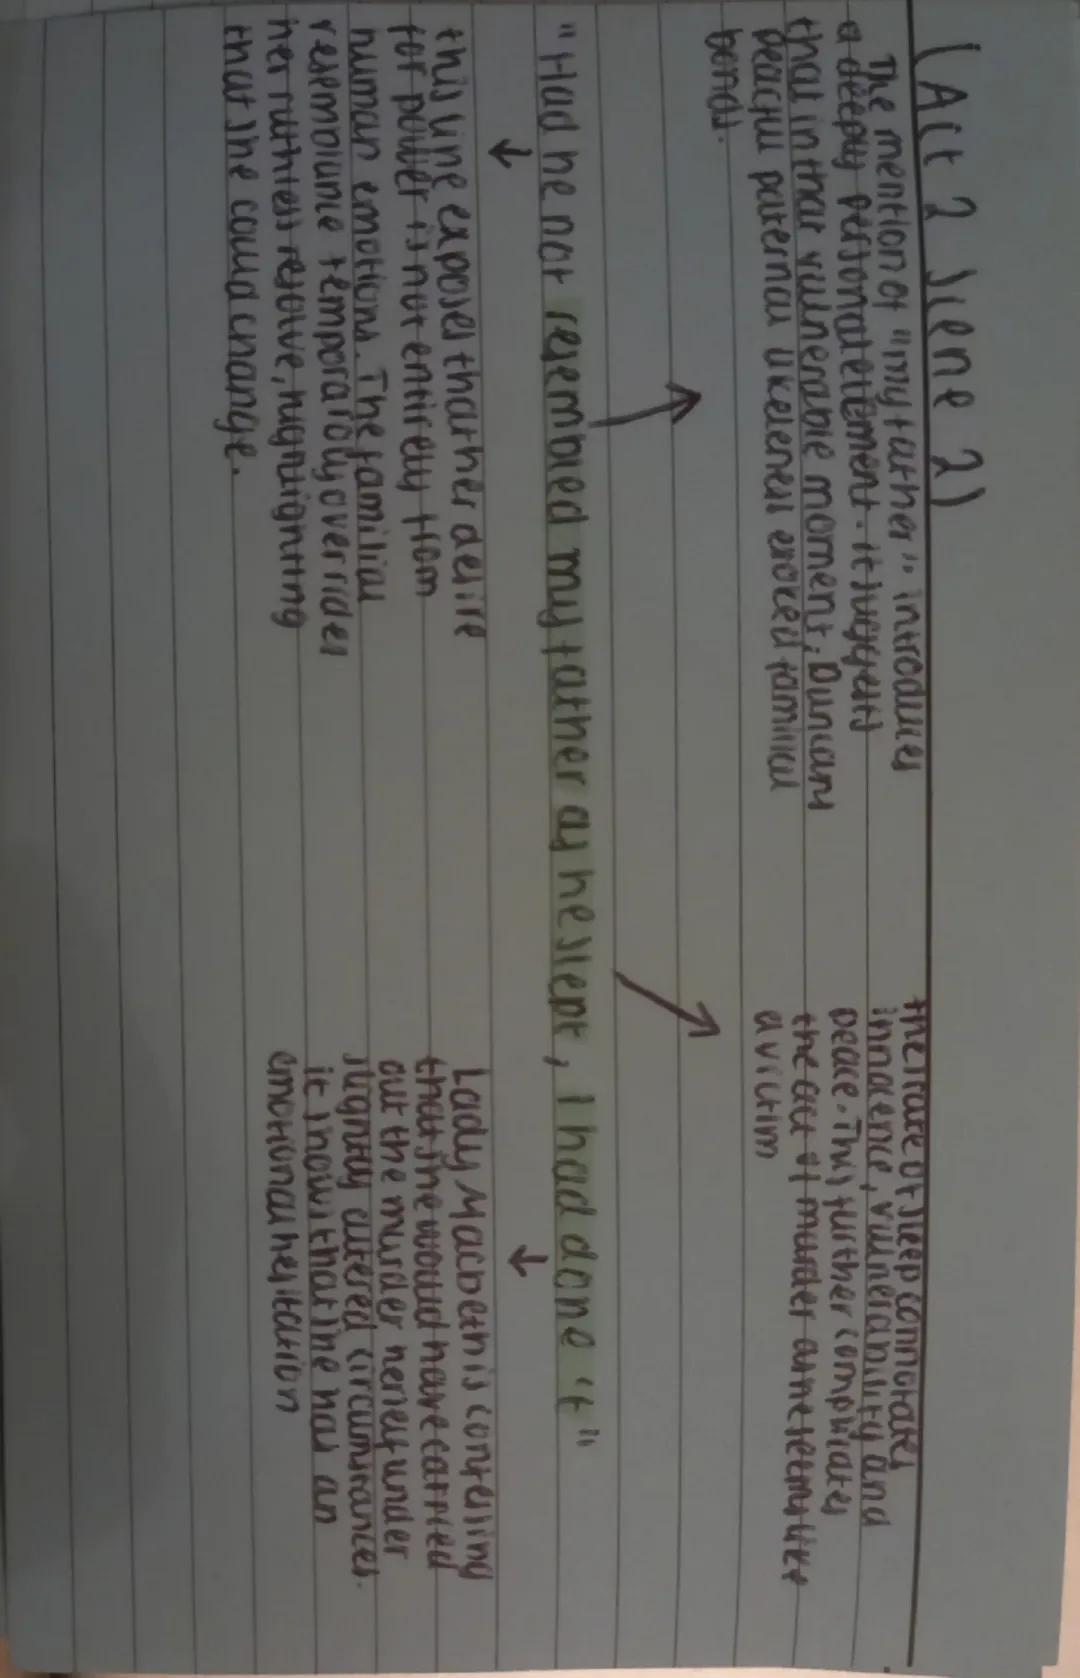 (Act 2 Scene 2)
The mention of "my father" introduces
a deeply personal element. It suggests
that in that vulnerable moment, Duncans
peacful paternal likeleness evoked familial
bonds.
the state of sleep connotates
innocence, vulnerability and
peace. This further complicates
the act of murder as
a victim
"Had he not resembled my father as he slept, I had done it"
this line exposes that her desire
for power is not entirely from
human emotions. The familial
resemblance temporaroly overrides
her ruthless resolve, highlighting
that she could change.
Lady Macbeth is confessing
that she would have carried
out the murder herself under
slightly altered circumstances.
it shows that she has an
emotional hesitation